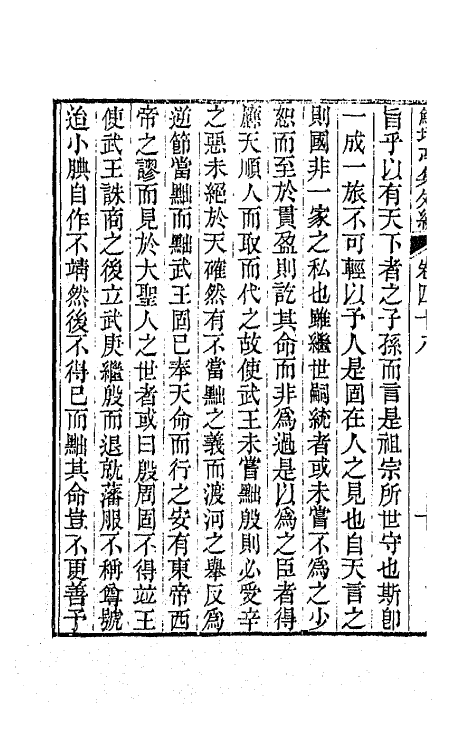 鮚埼亭集外編 卷四十八
旨乎以有天下者之子孫而言是祖宗所世守也斯卽
一成一旅不可輕以予人是固在人之見也自天言之
則國非一家之私也雖繼世嗣統者或未嘗不爲之少
恕而至於貫盈則訖其命而非爲過是以爲之臣者得
應天順人而取而代之故使武王未嘗黜殷則必受辛
之惡未絕於天確然有不當黜之義而渡河之舉反爲
逆節當黜而黜武王固已奉天命而行之安有東帝西
帝之謬而見於大聖人之世者或曰殷周固不得竝王
使武王誅商之後立武庚繼殷而退就藩服不稱尊號
迨小腆自作不靖然後不得已而黜其命豈不更善乎